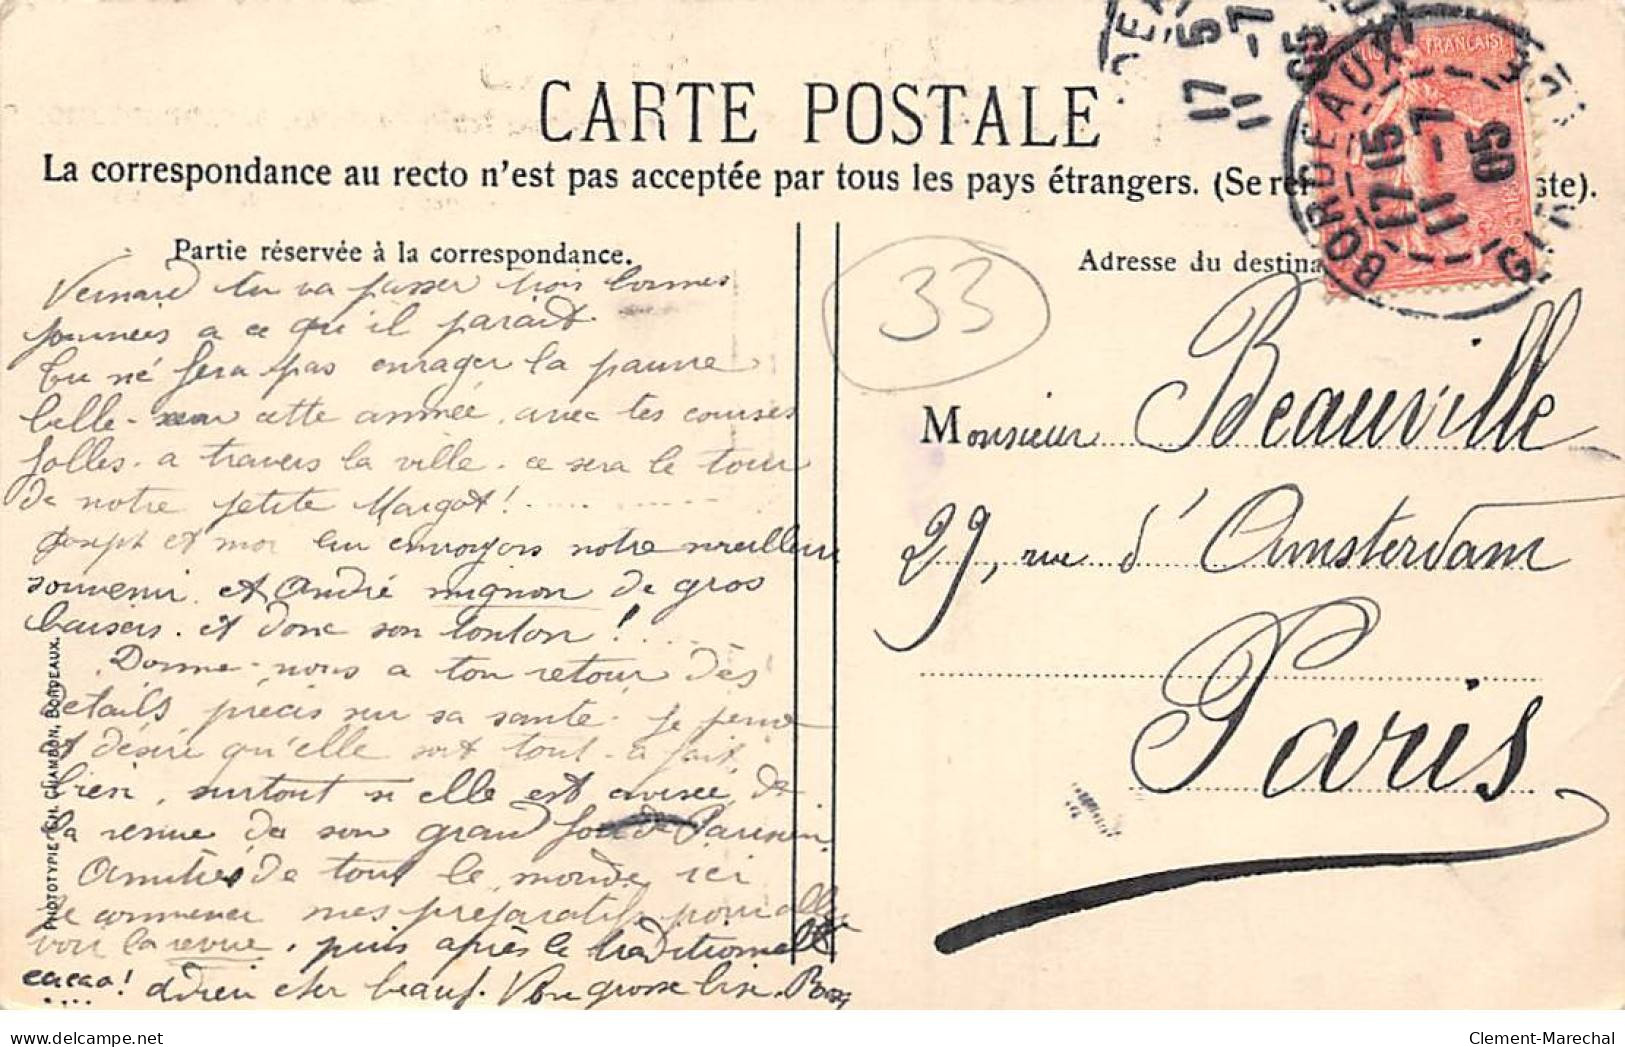 CARTE POSTALE
La correspondance au recto n'est pas acceptée par tous les pays étrangers. (Se ste).
Partie réservée à la correspondance.
tu va passer trois bonnes
journées a ce qu'il parait.
tu né fera pas enrager la pauvre
belle-sœur cette année, avec tes courses
folles. a travers la ville. ce sera le tour
de notre petite Margot! ...
Joseph et moi lui envoyons notre meilleur
souvenir. et André mignon de gros
baisers. et donc son tonton! ...
Donne-nous a ton retour dès
détails précis sur sa santé. Je pense
et désire qu'elle soit tout-a fait
bien, surtout si elle est avisée de
la venue de son grand fou de Parisien.
Amitiés de tout le monde ici
Je commence mes préparatifs pour aller
voir la revue. puis après le traditionnel
cacao! adieu cher beauf. Vne grosse bise.
PHOTOTYPIE CH. CHAMBON, BORDEAUX.
33
Adresse du destina
Monsieur Beauville
29, rue d'Amsterdam
Paris
17 15
11 -7
05
BORDEAUX
17 15
11 -7
05
FRANÇAISE
delcampe.net
Clement-Marechal